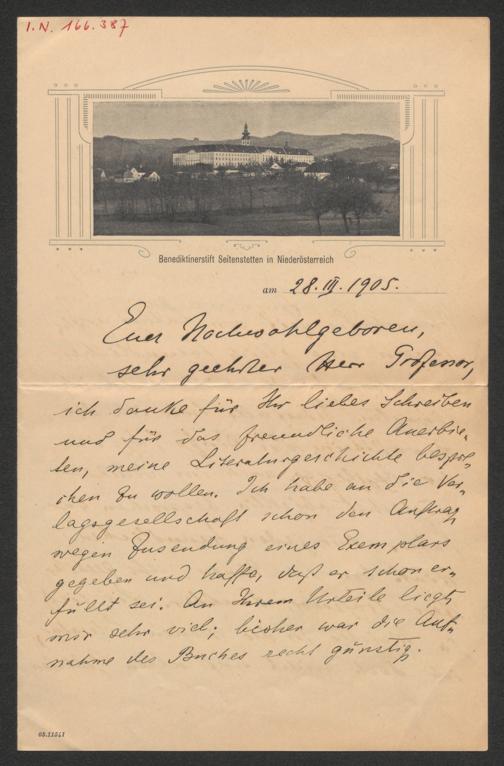 I.N. 166.387
Benediktinerstift Seitenstetten in Niederösterreich
am 28. III. 1905.
Euer Hochwohlgeboren,
sehr geehrter Herr Professor,
ich danke für Ihr liebes Schreiben
und für das freundliche Anerbie-
ten, meine Literaturgeschichte bespre-
chen zu wollen. Ich habe an die Ver-
lagsgesellschaft schon den Auftrag
wegen Zusendung eines Exemplars
gegeben und hoffe, daß er schon er-
füllt sei. An Ihrem Urteile liegt
mir sehr viel; bisher war die Auf-
nahme des Buches recht günstig.
05.11541